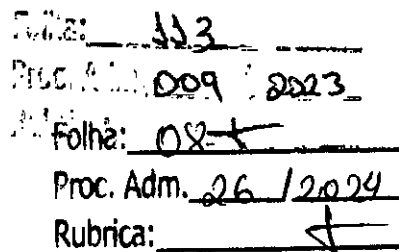 Folha: 113
Proc. Adm. 009 / 2023
Folha: 08
Proc. Adm. 26 / 2024
Rubrica: